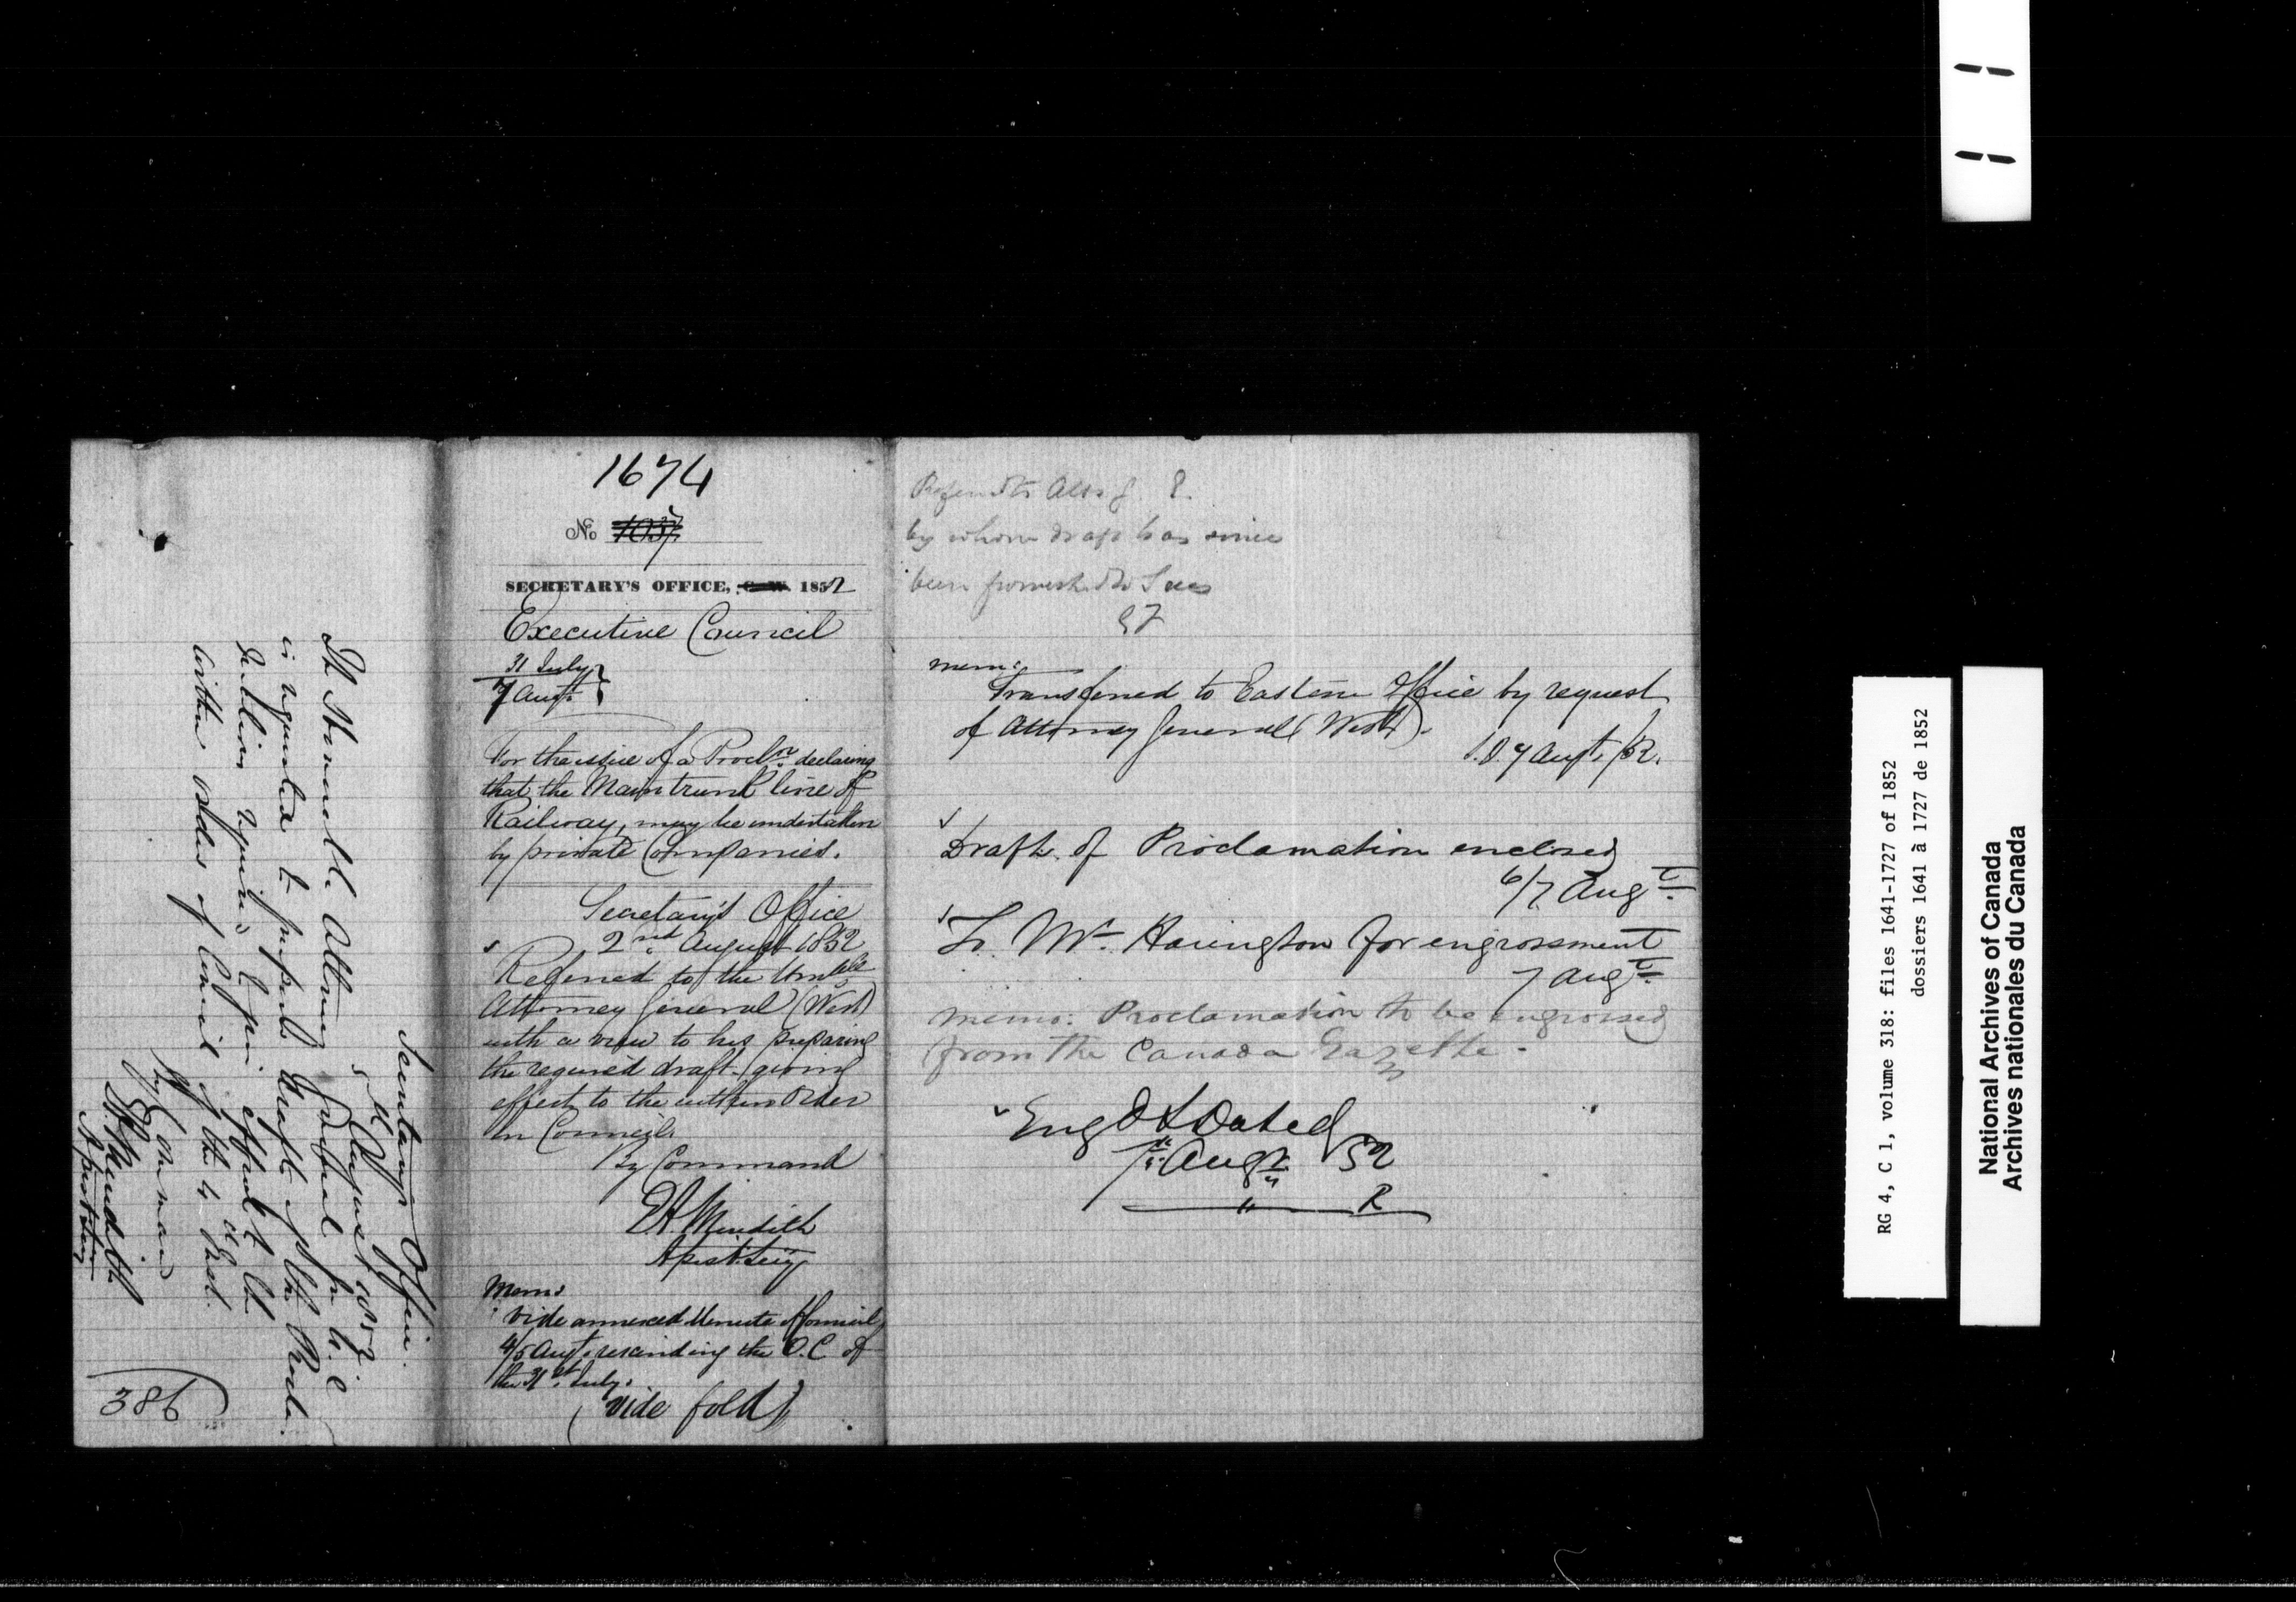 Secretary's Office.
5th August 1852
The Honorable Attorney General for C. E
is requested to prepare Draft of the Procl.
giving effect to the
within order of Council of the 4th Inst.
By Command
E A Meredith
Asst Secy
386
1674
No 1037
SECRETARY'S OFFICE, C. W. 1852
Executive Council
31 July
7 Augt.
For the issue of a Procln. declaring
that the Main trunk line of
Railway, may be undertaken
by private Companies.
Secretary's Office
2nd. August 1852
Referred to the Honble
Attorney General (West)
with a view to his preparing
the required draft giving
effect to the within Order
in Council.
By Command
E A Meredith
Asst. Secy
Memo
Vide annexed Minute of Council
4/5 Augt. rescinding the O.C of
the 31st. July.
(Vide fold)
by whom draft has since
been
memo:
Transferred to Eastern Office by request
of Attorney General (West).
7 Augt. /52.
Draft of Proclamation enclosed
6/7 Augt.
To Mr. Harington for engrossment
7 Augt.
Memo: Proclamation to be engrossed
from the Canada Gazette -
Engd & Dated
7th Augt. 52
" R
RG 4, C 1, volume 318: files 1641-1727 of 1852
dossiers 1641 à 1727 de 1852
National Archives of Canada
Archives nationales du Canada